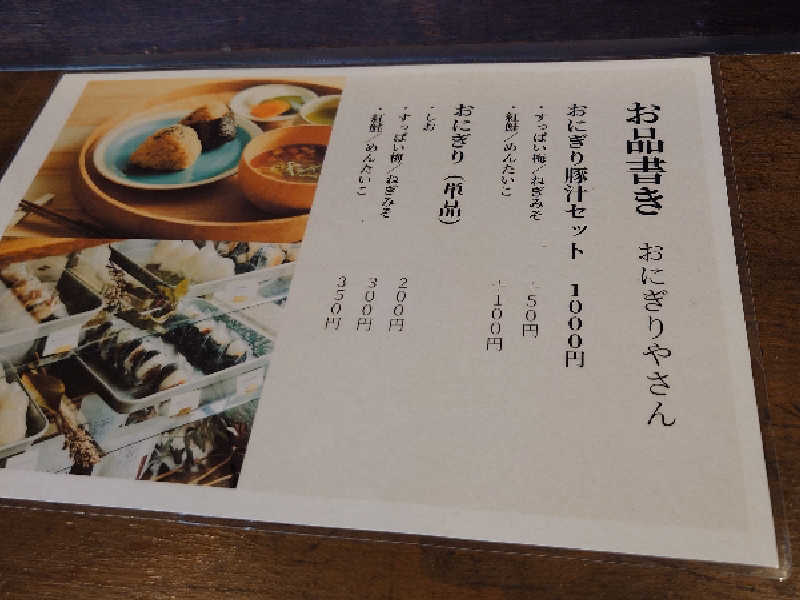 お品書き おにぎりやさん
おにぎり豚汁セット 1000円
・すっぱい梅/ねぎみそ +50円
・紅鮭/めんたいこ +100円
おにぎり(単品)
・しお 200円
・すっぱい梅/ねぎみそ 300円
・紅鮭/めんたいこ 350円